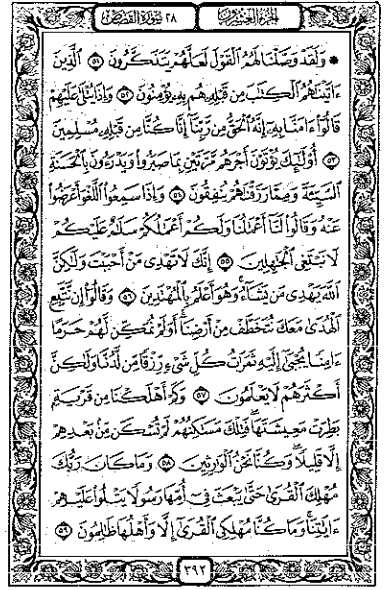 الجزء العشرون ٢٨ سورة القصص
۞ وَلَقَدْ وَصَّلْنَا لَهُمُ الْقَوْلَ لَعَلَّهُمْ يَتَذَكَّرُونَ ﴿٥١﴾ الَّذِينَ
ءَاتَيْنَاهُمُ الْكِتَابَ مِن قَبْلِهِ هُم بِهِ يُؤْمِنُونَ ﴿٥٢﴾ وَإِذَا يُتْلَىٰ عَلَيْهِمْ
قَالُوا ءَامَنَّا بِهِ إِنَّهُ الْحَقُّ مِن رَّبِّنَا إِنَّا كُنَّا مِن قَبْلِهِ مُسْلِمِينَ
﴿٥٣﴾ أُولَٰئِكَ يُؤْتَوْنَ أَجْرَهُم مَّرَّتَيْنِ بِمَا صَبَرُوا وَيَدْرَءُونَ بِالْحَسَنَةِ
السَّيِّئَةَ وَمِمَّا رَزَقْنَاهُمْ يُنفِقُونَ ﴿٥٤﴾ وَإِذَا سَمِعُوا اللَّغْوَ أَعْرَضُوا
عَنْهُ وَقَالُوا لَنَا أَعْمَالُنَا وَلَكُمْ أَعْمَالُكُمْ سَلَامٌ عَلَيْكُمْ
لَا نَبْتَغِي الْجَاهِلِينَ ﴿٥٥﴾ إِنَّكَ لَا تَهْدِي مَنْ أَحْبَبْتَ وَلَٰكِنَّ
اللَّهَ يَهْدِي مَن يَشَاءُ وَهُوَ أَعْلَمُ بِالْمُهْتَدِينَ ﴿٥٦﴾ وَقَالُوا إِن نَّتَّبِعِ
الْهُدَىٰ مَعَكَ نُتَخَطَّفْ مِنْ أَرْضِنَا أَوَلَمْ نُمَكِّن لَّهُمْ حَرَمًا
ءَامِنًا يُجْبَىٰ إِلَيْهِ ثَمَرَاتُ كُلِّ شَيْءٍ رِّزْقًا مِّن لَّدُنَّا وَلَٰكِنَّ
أَكْثَرَهُمْ لَا يَعْلَمُونَ ﴿٥٧﴾ وَكَمْ أَهْلَكْنَا مِن قَرْيَةٍ
بَطِرَتْ مَعِيشَتَهَا فَتِلْكَ مَسَاكِنُهُمْ لَمْ تُسْكَن مِّن بَعْدِهِمْ
إِلَّا قَلِيلًا وَكُنَّا نَحْنُ الْوَارِثِينَ ﴿٥٨﴾ وَمَا كَانَ رَبُّكَ
مُهْلِكَ الْقُرَىٰ حَتَّىٰ يَبْعَثَ فِي أُمِّهَا رَسُولًا يَتْلُوا عَلَيْهِمْ
ءَايَاتِنَا وَمَا كُنَّا مُهْلِكِي الْقُرَىٰ إِلَّا وَأَهْلُهَا ظَالِمُونَ ﴿٥٩﴾
٣٩٢